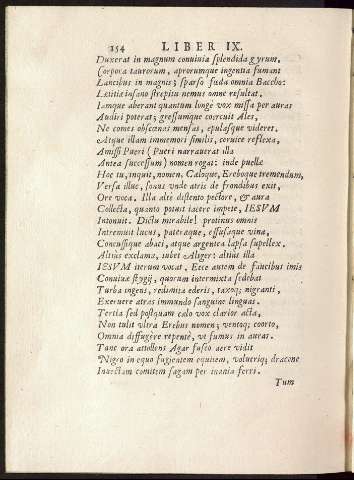 154 LIBER IX.
Duxerat in magnum conuiuia splendida gyrum,
Corpora taurorum, aprorumque ingentia fumant
Lancibus in magnis; sparso fuda omnia Baccho:
Lætitiæ insano strepitu nemus omne resultat.
Iamque aberant quantum longè vox missa per auras
Audiri poterat; gressumque coercuit Ales,
Ne comes obscœnas mensas, epulasque videret,
Atque illam immemori similis, ceruice reflexa,
Amissi Pueri (Pueri narrauerat illa
Antea successum) nomen rogat: inde puellæ
Hoc tu, inquit, nomen, Cæloque, Ereboque tremendum,
Versa illuc, sonus unde atris de frondibus exit,
Ore voca. Illa altè distento pectore, & aura
Collecta, quanto potuit iacere impete, IESVM
Intonuit. Dictu mirabile! protinus omnis
Intremuit lucus, pateræque, effusaque vina,
Concussique abaci, atque argentea lapsa supellex.
Altiùs exclama, iubet Aliger: altiùs illa
IESVM iterum vocat. Ecce autem de faucibus imis
Conuiuæ stygij, quorum intermixta sedebat
Turba ingens, redimita ederis, taxoq; nigranti,
Exeruere atras immundo sanguine linguas.
Tertia sed postquam cælo vox clarior acta,
Non tulit vltra Erebus nomen; ventoq; coorto,
Omnia diffugêre repentè, ve fumus in auras.
Tunc ora attollens Agar fusco aere vidit
Nigro in equo fugientem equitem, volucriq; dracone
Inuectam comitem sagam per inania ferri.
Tum